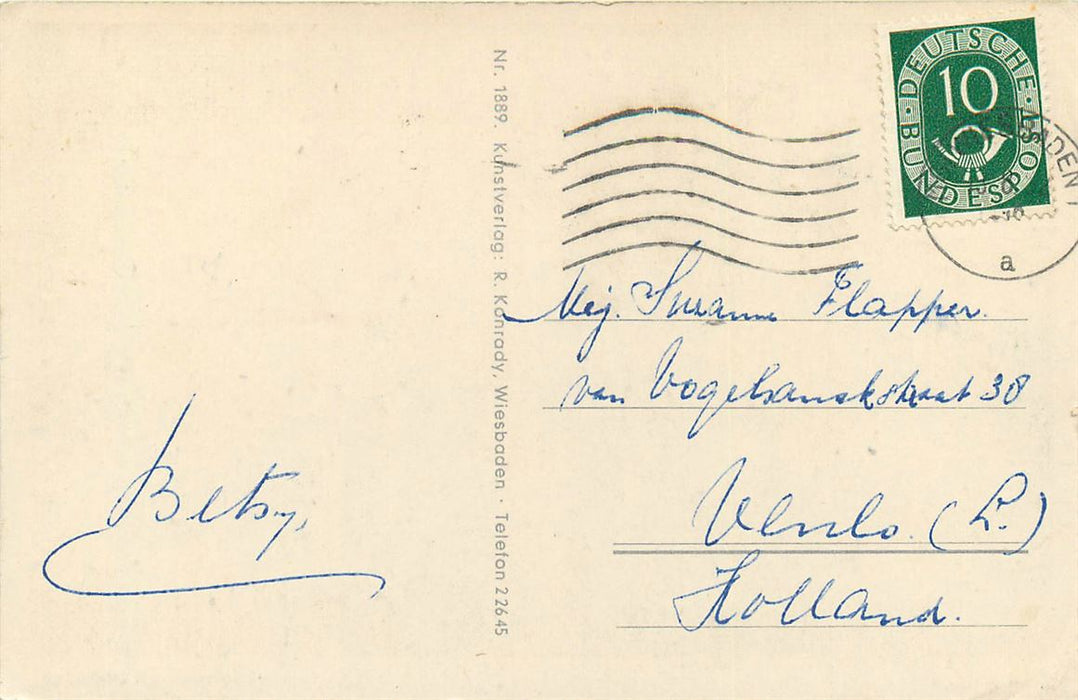 Betsy.
Nr. 1889. Kunstverlag: R. Konrady, Wiesbaden · Telefon 22645
DEUTSCHE · BUNDESPOST
10
a
Mej. Suzanne Flapper.
van 38
Venlo. (L.)
Holland.